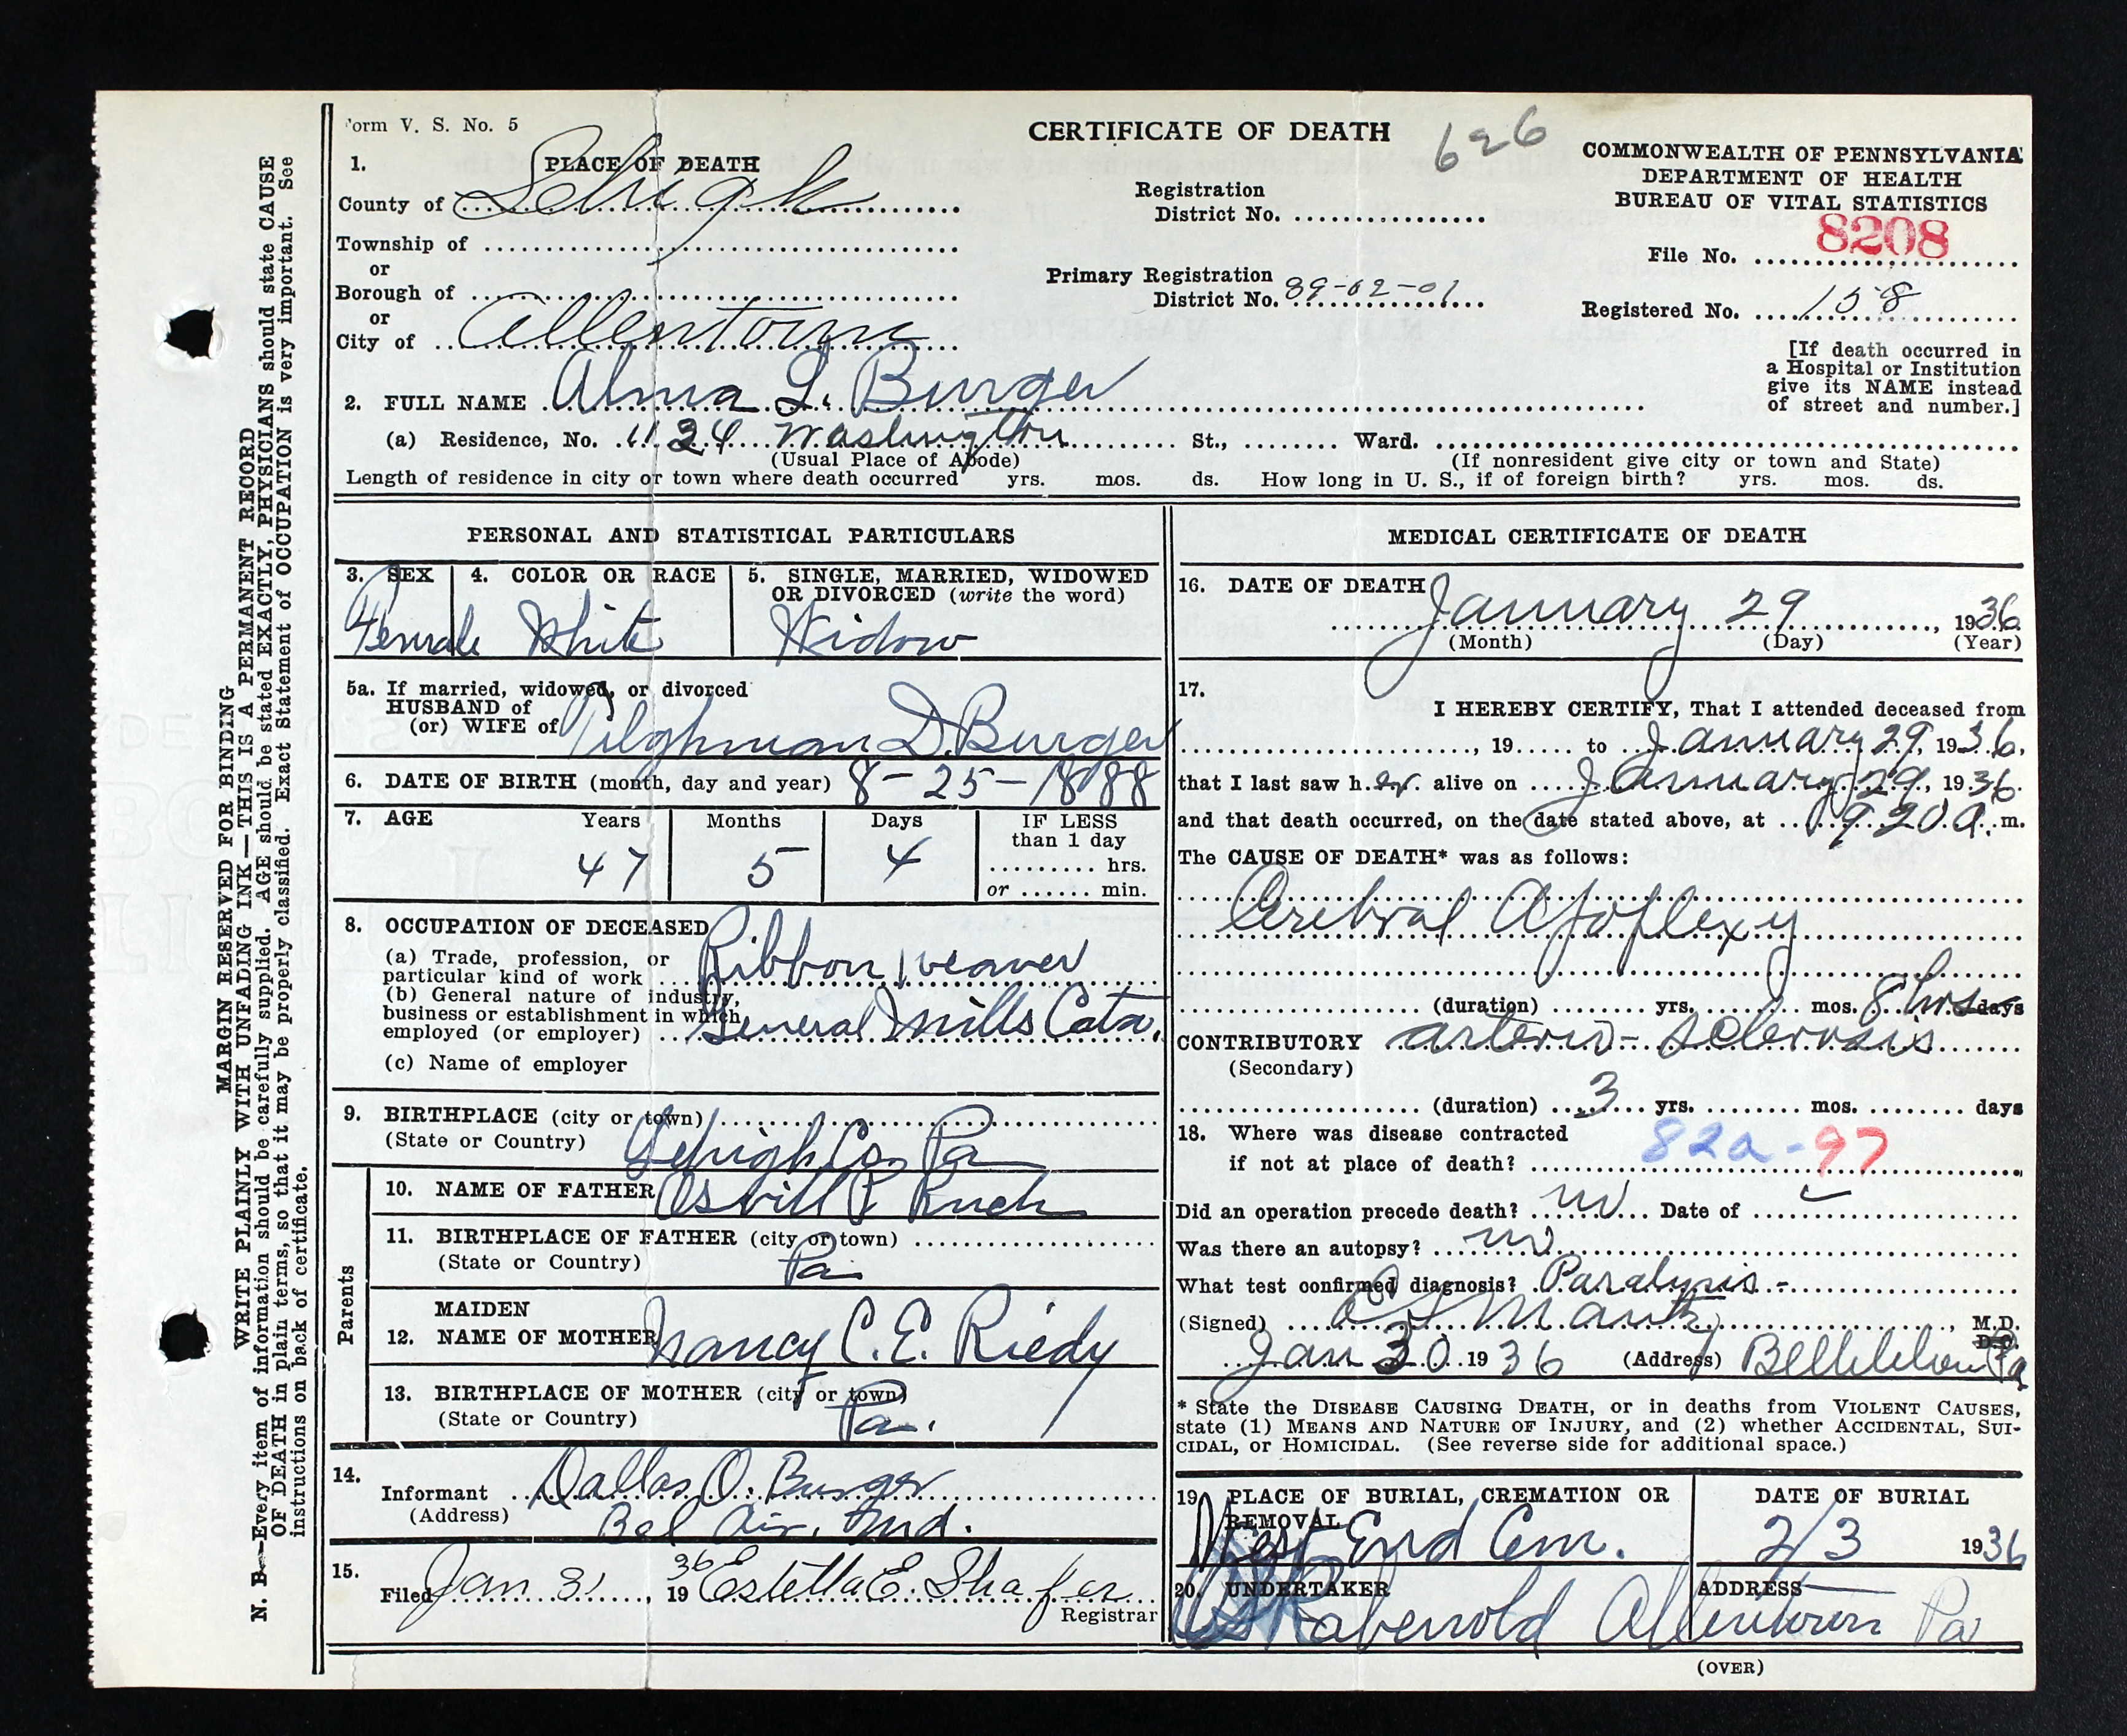 Form V. S. No. 5
CERTIFICATE OF DEATH
626
COMMONWEALTH OF PENNSYLVANIA
DEPARTMENT OF HEALTH
BUREAU OF VITAL STATISTICS
1. PLACE OF DEATH
County of Lehigh
Township of
or
Borough of
or
City of Allentown
Registration
District No.
Primary Registration
District No. 89-02-01
File No. 8208
Registered No. 158
[If death occurred in
a Hospital or Institution
give its NAME instead
of street and number.]
2. FULL NAME Alma L. Burger
(a) Residence, No. 1124 Washington St., Ward.
(Usual Place of Abode)
(If nonresident give city or town and State)
Length of residence in city or town where death occurred yrs. mos. ds. How long in U. S., if of foreign birth? yrs. mos. ds.
PERSONAL AND STATISTICAL PARTICULARS
3. SEX
Female
4. COLOR OR RACE
White
5. SINGLE, MARRIED, WIDOWED
OR DIVORCED (write the word)
Widow
5a. If married, widowed, or divorced
HUSBAND of
(or) WIFE of Tilghman D. Burger
6. DATE OF BIRTH (month, day and year) 8-25-1888
7. AGE Years Months Days IF LESS
than 1 day
47 5 4
hrs.
or min.
8. OCCUPATION OF DECEASED
(a) Trade, profession, or
particular kind of work Ribbon weaver
(b) General nature of industry,
business or establishment in which
employed (or employer) General Mills Cata.
(c) Name of employer
9. BIRTHPLACE (city or town)
(State or Country) Lehigh Co. Pa
Parents
10. NAME OF FATHER Osvill P Ruch
11. BIRTHPLACE OF FATHER (city or town)
(State or Country) Pa.
MAIDEN
12. NAME OF MOTHER Nancy C. E. Riedy
13. BIRTHPLACE OF MOTHER (city or town)
(State or Country) Pa.
14. Informant Dallas O. Burger
(Address) Bel Air, Md.
15. Filed Jan 31, 1936 Estella E. Shafer
Registrar
MEDICAL CERTIFICATE OF DEATH
16. DATE OF DEATH
January 29, 1936
(Month) (Day) (Year)
17. I HEREBY CERTIFY, That I attended deceased from
, 19 to January 29, 1936,
that I last saw her alive on January 29, 1936
and that death occurred, on the date stated above, at 9 20 a. m.
The CAUSE OF DEATH* was as follows:
Cerebral Apoplexy
(duration) yrs. mos. 8 hrs days
CONTRIBUTORY arterio-sclerosis
(Secondary)
(duration) 3 yrs. mos. days
18. Where was disease contracted
if not at place of death?
82a-97
Did an operation precede death? no Date of
Was there an autopsy? no
What test confirmed diagnosis? Paralysis -
(Signed) Mantz, M.D.
D.O.
Jan 30 1936 (Address) Bethlehem Pa
* State the DISEASE CAUSING DEATH, or in deaths from VIOLENT CAUSES,
state (1) MEANS AND NATURE OF INJURY, and (2) whether ACCIDENTAL, SUI-
CIDAL, or HOMICIDAL. (See reverse side for additional space.)
19. PLACE OF BURIAL, CREMATION OR
REMOVAL
West End Cem.
DATE OF BURIAL
2/3 1936
20. UNDERTAKER
Rabenold
ADDRESS
Allentown Pa
(OVER)
MARGIN RESERVED FOR BINDING
WRITE PLAINLY WITH UNFADING INK—THIS IS A PERMANENT RECORD
N. B—Every item of information should be carefully supplied. AGE should be stated EXACTLY, PHYSICIANS should state CAUSE
OF DEATH in plain terms, so that it may be properly classified. Exact Statement of OCCUPATION is very important. See
instructions on back of certificate.